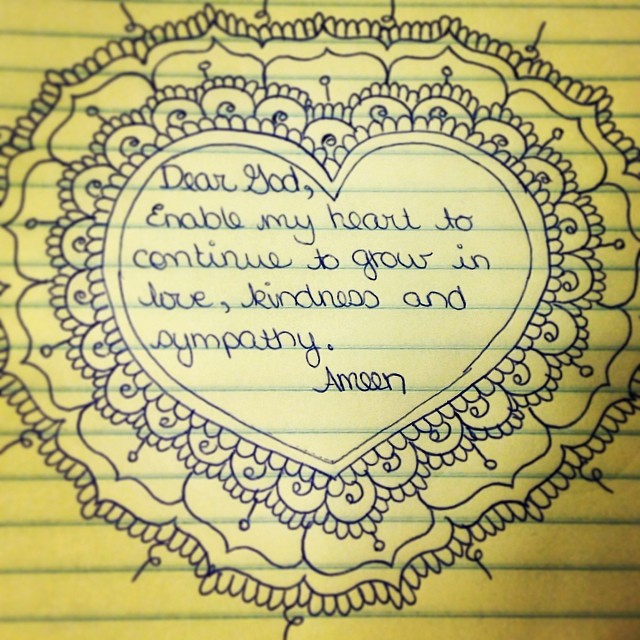 Dear God,
Enable my heart to
continue to grow in
love, kindness and
sympathy.
Ameen